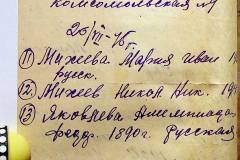 комсомольская 14
26/VII-76
11) Михеева Мария Иван 19
русск.
12. Михеев Никон Ник. 19
13 Яковлева Алимпиада
федр. 1890г. русская